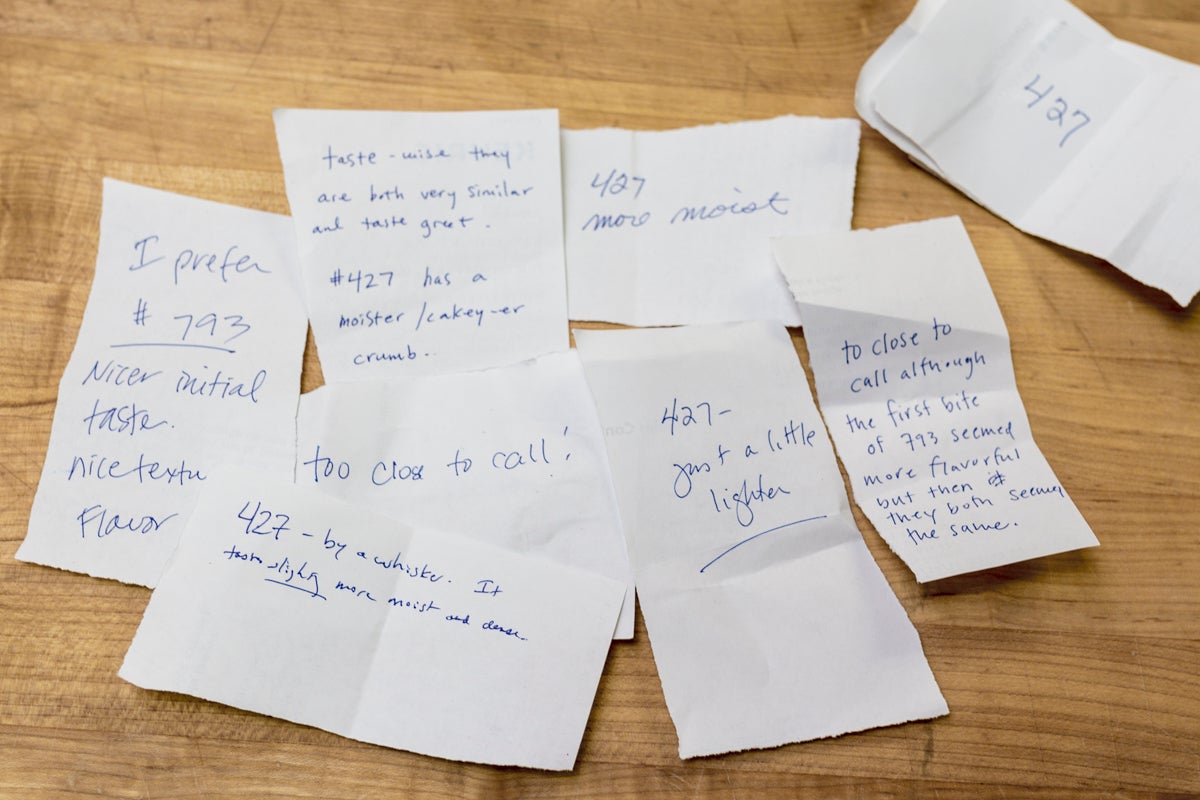 I prefer
# 793
Nicer initial
taste.
nice textu
Flavor
taste-wise they
are both very similar
and taste great.
#427 has a
moister/cakey-er
crumb.
427
more moist
427
too close to call!
427 - by a whisker. It
tastes slightly more moist and dense.
427-
just a little
lighter
to close to
call although
the first bite
of 793 seemed
more flavorful
but then
they both seemed
the same.